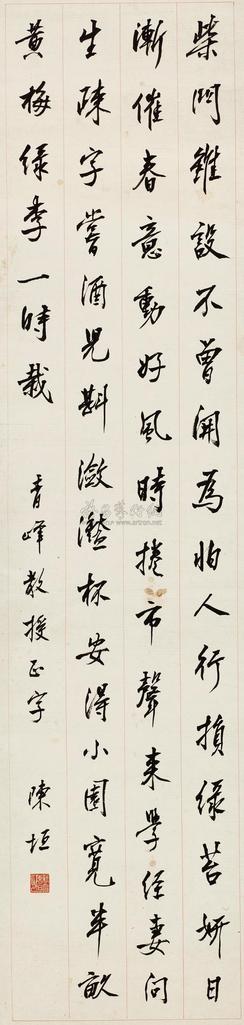 柴門雖設不曾開為怕人行損綠苔妍日
漸催春意動好風時捲市聲來學經妻問
生疎字嘗酒兒斟瀲灧杯安得小園寬半畝
黃梅綠李一時栽
青峰教授正字 陳垣